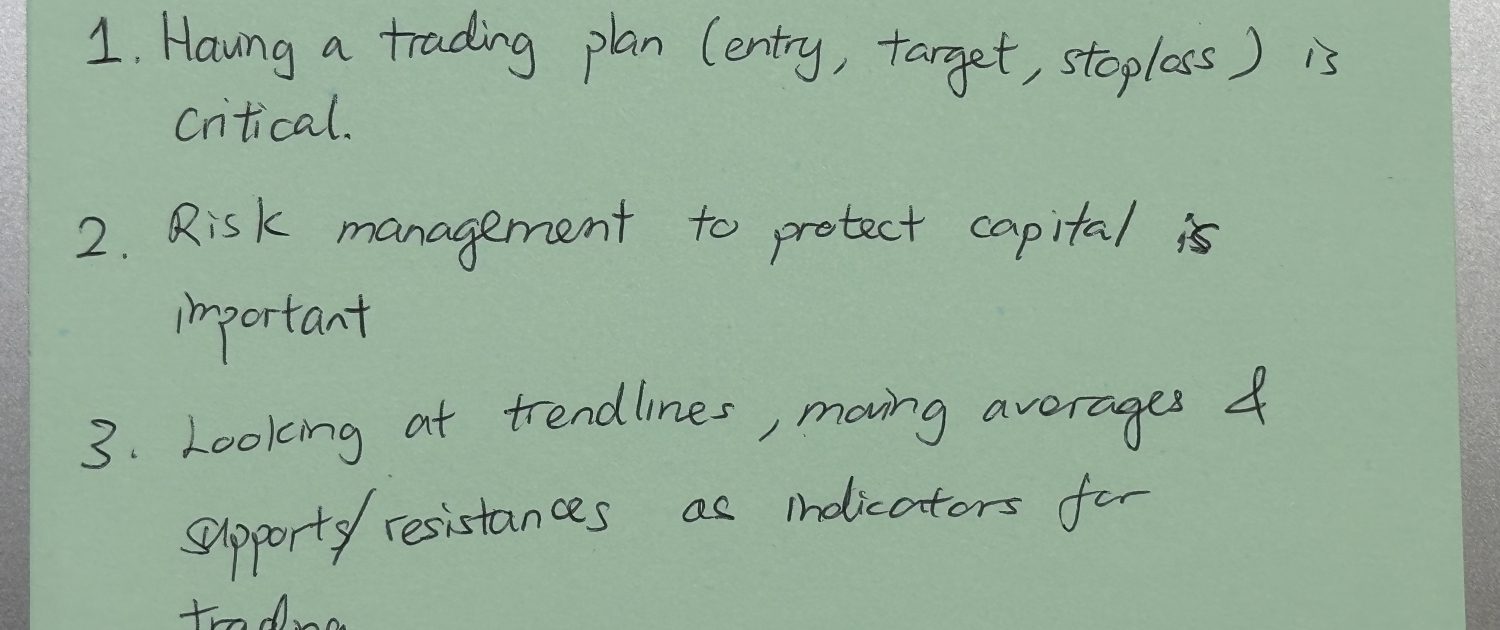 1. Having a trading plan (entry, target, stoploss) is
critical.
2. Risk management to protect capital is
important
3. Looking at trendlines, moving averages &
supports/resistances as indicators for
trading